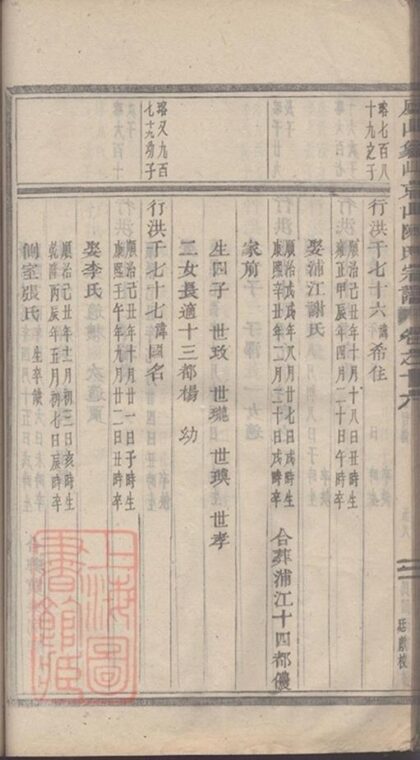 陳氏宗譜 卷之十六
珞七百八
十九之子
行洪千七十六諱希住
順治己丑年十月十八日丑時生
雍正甲辰年四月二十日午時卒
娶浦江謝氏
順治戊戌年八月廿七日戌時生
康熙壬子年三月三十日戌時卒
合葬蒲江十四都儂
家前
生四子 世玫 世瓏 世璵 世孝
二女長適十三都楊 幼
珞又九百
七十九幼子
行洪千七十七諱國名
順治己丑年十月廿一日子時生
康熙壬午年九月廿二日丑時卒
娶李氏
順治己丑年十一月初三日亥時生
乾隆丙辰年五月初七日辰時卒
側室張氏
生卒缺
上海圖
書館藏